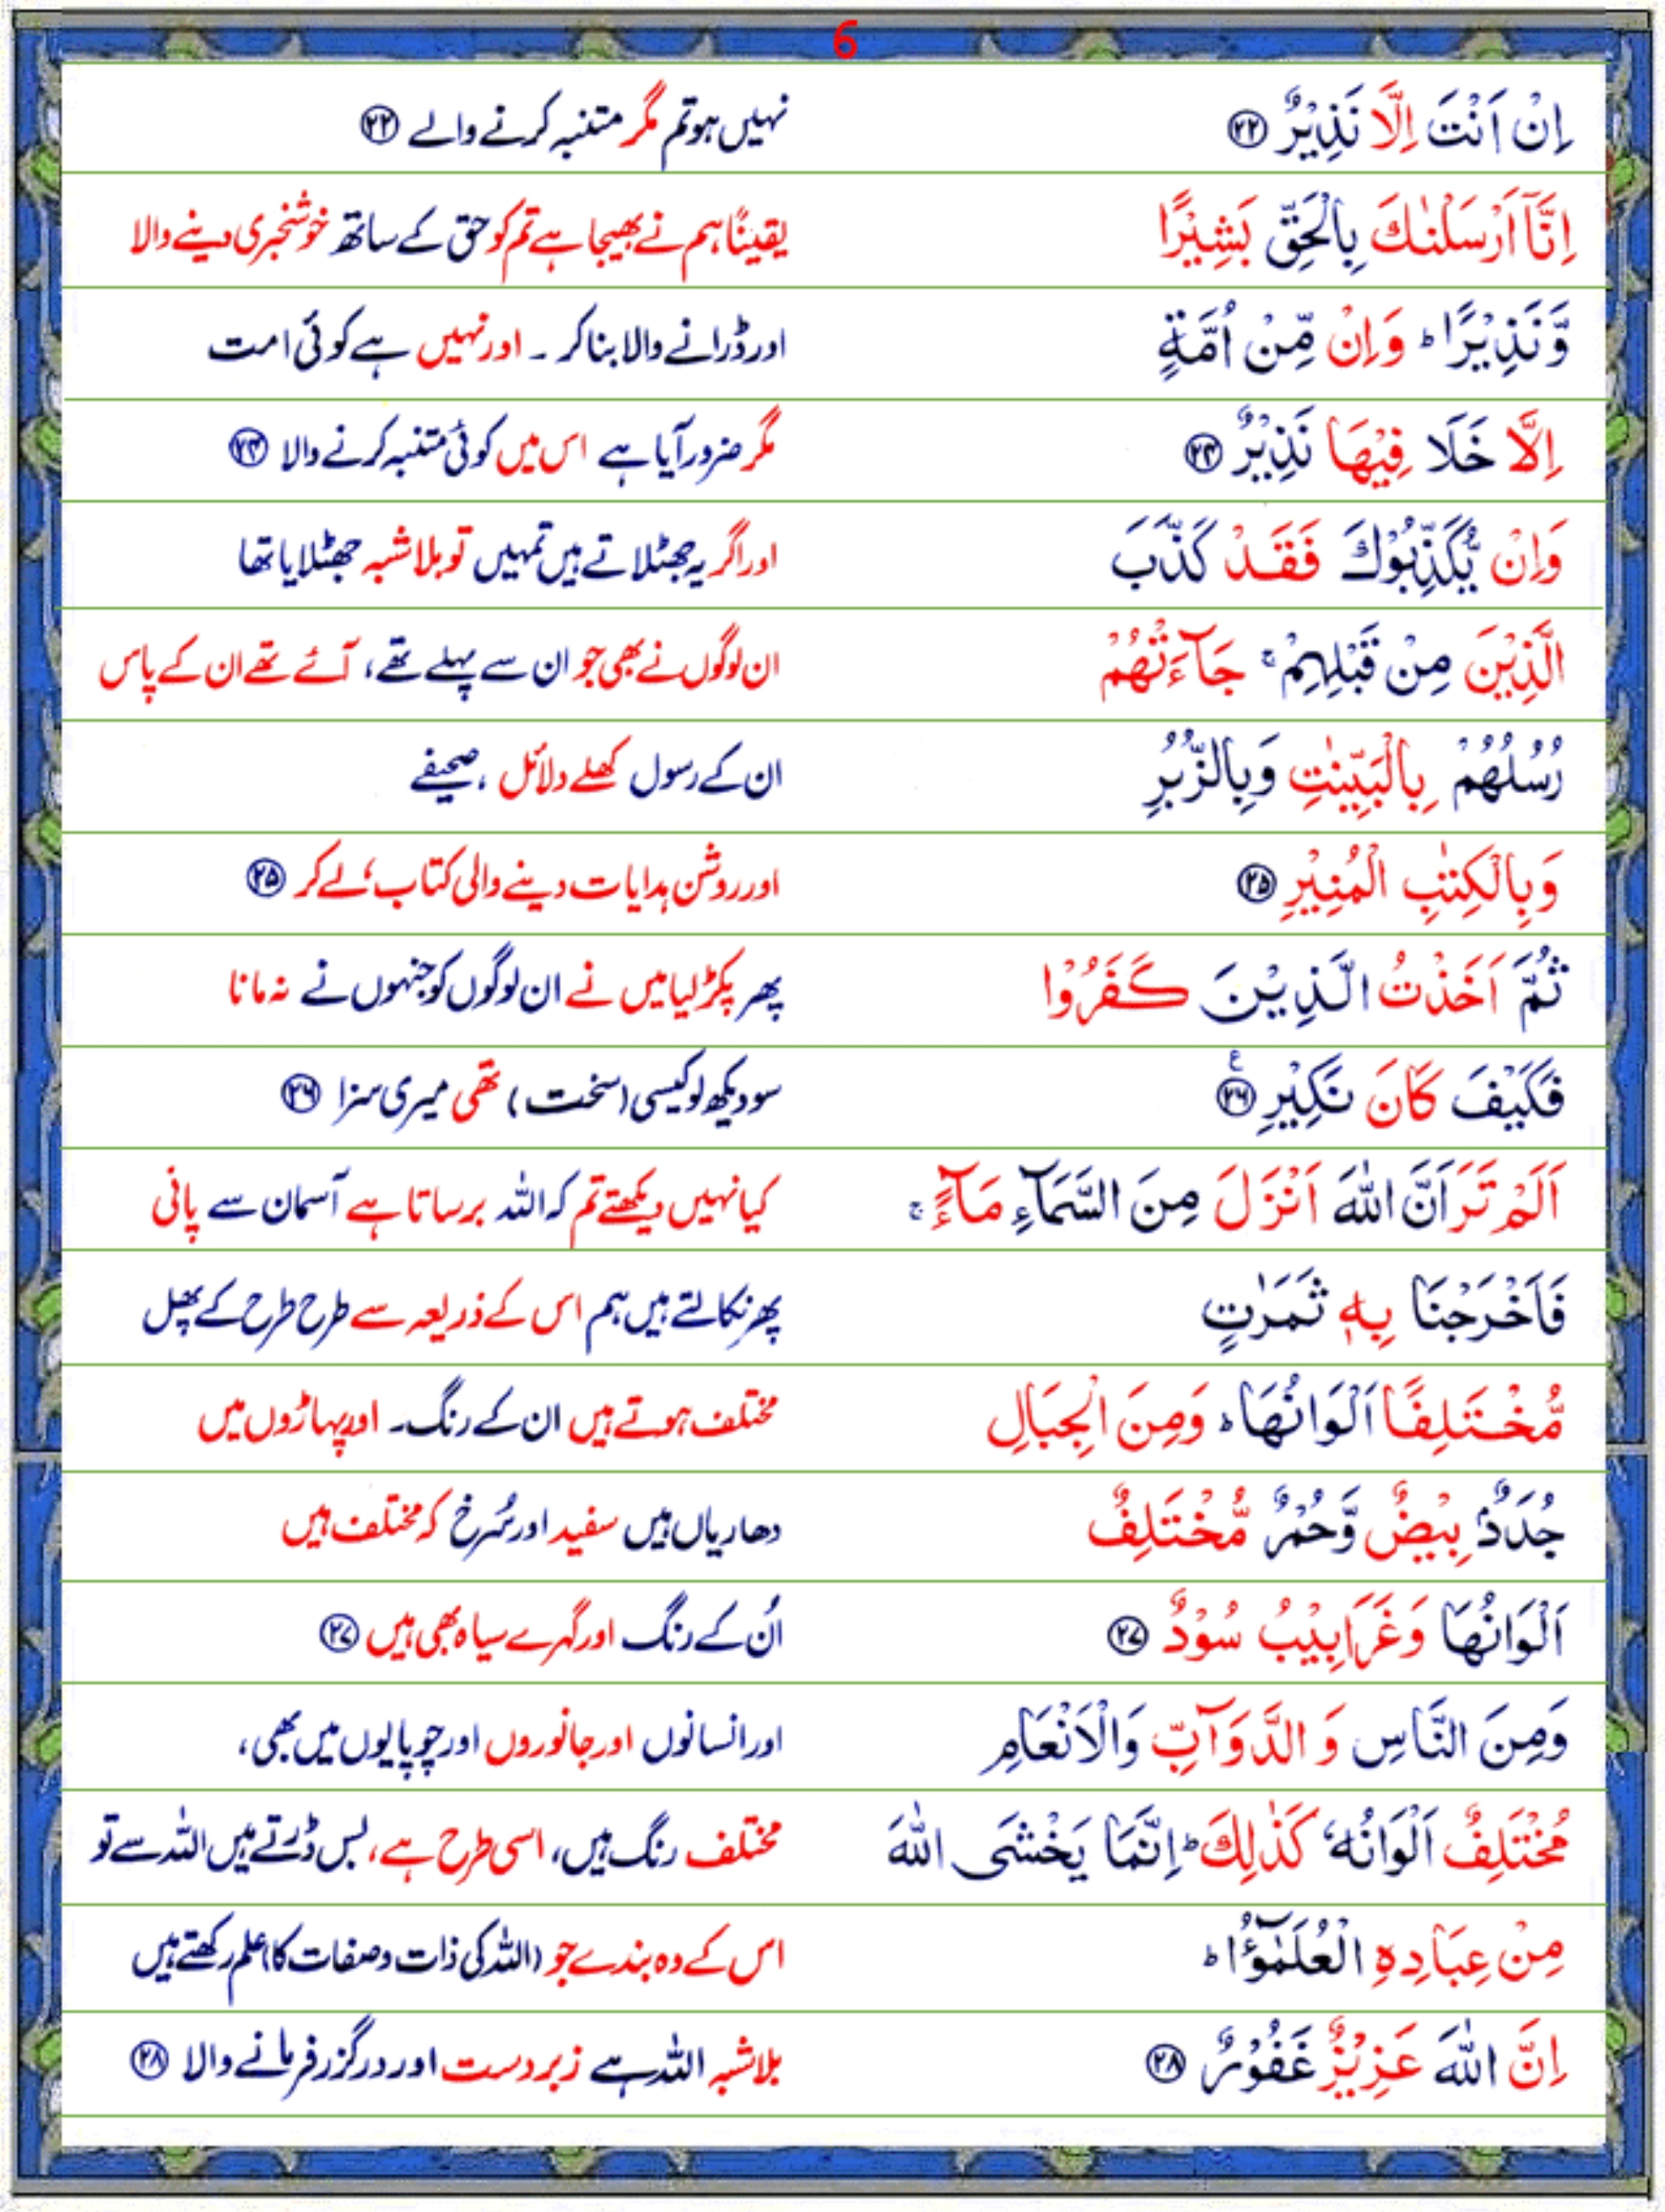 6
اِنْ اَنْتَ اِلَّا نَذِيْرٌ ۲۳ نہیں ہو تم مگر متنبہ کرنے والے ۲۳
اِنَّاۤ اَرْسَلْنٰكَ بِالْحَقِّ بَشِيْرًا یقیناً ہم نے بھیجا ہے تم کو حق کے ساتھ خوشخبری دینے والا
وَّنَذِيْرًا ؕ وَاِنْ مِّنْ اُمَّةٍ اور ڈرانے والا بنا کر ۔ اور نہیں ہے کوئی امت
اِلَّا خَلَا فِيْهَا نَذِيْرٌ ۲۴ مگر ضرور آیا ہے اس میں کوئی متنبہ کرنے والا ۲۴
وَاِنْ يُّكَذِّبُوْكَ فَقَدْ كَذَّبَ اور اگر یہ جھٹلاتے ہیں تمہیں تو بلا شبہ جھٹلایا تھا
الَّذِيْنَ مِنْ قَبْلِهِمْ ۚ جَآءَتْهُمْ ان لوگوں نے بھی جو ان سے پہلے تھے، آئے تھے ان کے پاس
رُسُلُهُمْ بِالْبَيِّنٰتِ وَبِالزُّبُرِ ان کے رسول کھلے دلائل ، صحیفے
وَبِالْكِتٰبِ الْمُنِيْرِ ۲۵ اور روشن ہدایات دینے والی کتاب، لے کر ۲۵
ثُمَّ اَخَذْتُ الَّذِيْنَ كَفَرُوْا پھر پکڑ لیا میں نے ان لوگوں کو جنہوں نے نہ مانا
فَكَيْفَ كَانَ نَكِيْرِ ۲۶ ع سو دیکھ لو کیسی (سخت) تھی میری سزا ۲۶
اَلَمْ تَرَ اَنَّ اللّٰهَ اَنْزَلَ مِنَ السَّمَآءِ مَآءً ۚ کیا نہیں دیکھتے تم کہ اللہ برساتا ہے آسمان سے پانی
فَاَخْرَجْنَا بِهٖ ثَمَرٰتٍ پھر نکالتے ہیں ہم اس کے ذریعہ سے طرح طرح کے پھل
مُّخْتَلِفًا اَلْوَانُهَا ؕ وَمِنَ الْجِبَالِ مختلف ہوتے ہیں ان کے رنگ۔ اور پہاڑوں میں
جُدَدٌۢ بِيْضٌ وَّحُمْرٌ مُّخْتَلِفٌ دھاریاں ہیں سفید اور سُرخ کہ مختلف ہیں
اَلْوَانُهَا وَغَرَابِيْبُ سُوْدٌ ۲۷ اُن کے رنگ اور گہرے سیاہ بھی ہیں ۲۷
وَمِنَ النَّاسِ وَ الدَّوَآبِّ وَالْاَنْعَامِ اور انسانوں اور جانوروں اور چوپایوں میں بھی،
مُخْتَلِفٌ اَلْوَانُهٗ كَذٰلِكَ ؕ اِنَّمَا يَخْشَى اللّٰهَ مختلف رنگ ہیں، اسی طرح ہے، بس ڈرتے ہیں اللہ سے تو
مِنْ عِبَادِهِ الْعُلَمٰٓؤُا ؕ اس کے وہ بندے جو (اللہ کی ذات و صفات کا) علم رکھتے ہیں
اِنَّ اللّٰهَ عَزِيْزٌ غَفُوْرٌ ۲۸ بلا شبہ اللہ ہے زبردست اور درگزر فرمانے والا ۲۸